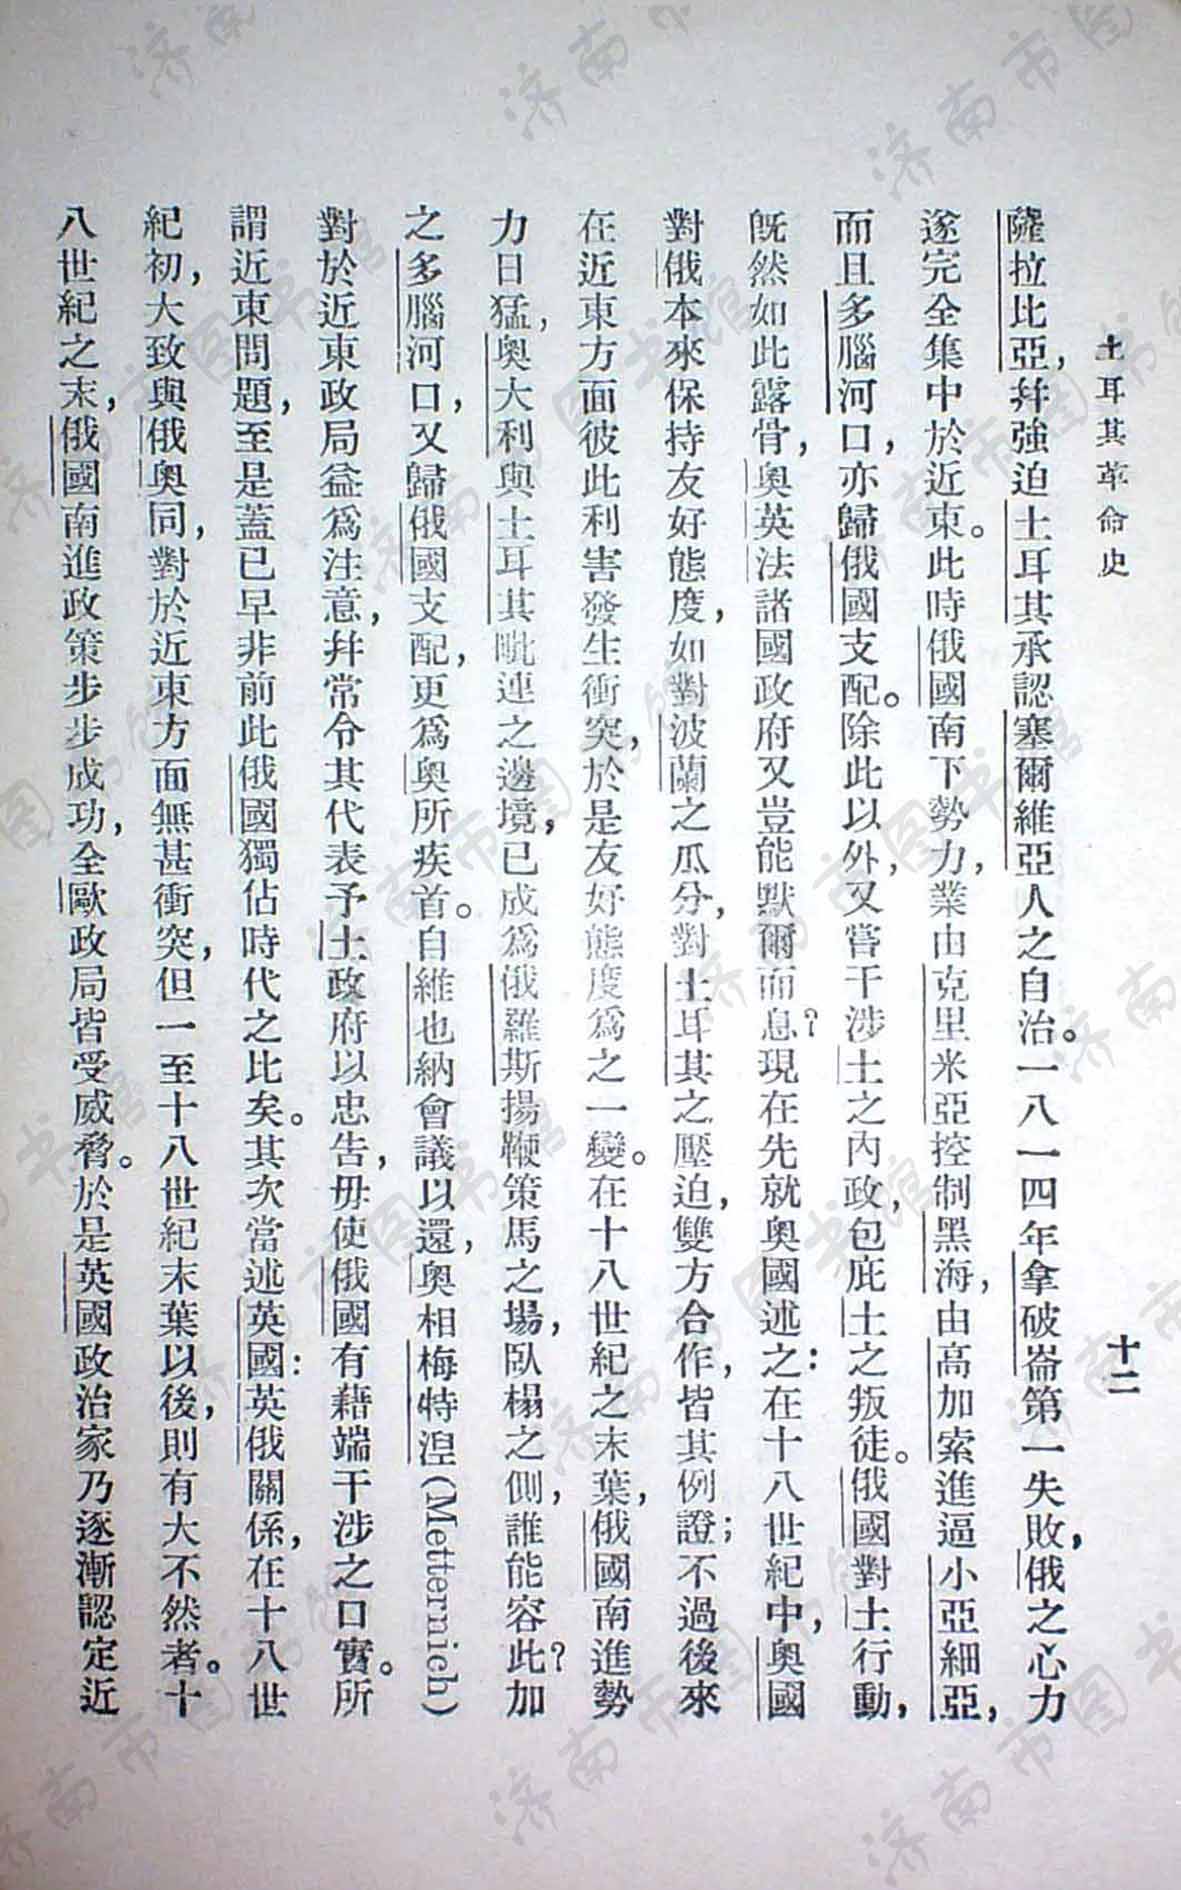 土耳其革命史
十二
薩拉比亞，幷強迫土耳其承認塞爾維亞人之自治。一八一四年拿破崙第一失敗，俄之心力
遂完全集中於近東。此時俄國南下勢力，業由克里米亞控制黑海，由高加索進逼小亞細亞，
而且多腦河口，亦歸俄國支配。除此以外，又嘗干涉土之內政，包庇土之叛徒。俄國對土行動，
旣然如此露骨，奧英法諸國政府又豈能默爾而息？現在先就奧國述之：在十八世紀中，奧國
對俄本來保持友好態度，如對波蘭之瓜分，對土耳其之壓迫，雙方合作，皆其例證；不過後來
在近東方面彼此利害發生衝突，於是友好態度爲之一變。在十八世紀之末葉，俄國南進勢
力日猛，奧大利與土耳其毗連之邊境，已成爲俄羅斯揚鞭策馬之場，臥榻之側，誰能容此？加
之多腦河口，又歸俄國支配，更爲奧所疾首。自維也納會議以還，奧相梅特涅(Metternich)
對於近東政局益爲注意，幷常令其代表予土政府以忠告，毋使俄國有藉端干涉之口實。所
謂近東問題，至是蓋已早非前此俄國獨佔時代之比矣。其次當述英國：英俄關係，在十八世
紀初，大致與俄奧同，對於近東方面無甚衝突，但一至十八世紀末葉以後，則有大不然者。十
八世紀之末，俄國南進政策步步成功，全歐政局皆受威脅。於是英國政治家乃逐漸認定近
济南市图书馆